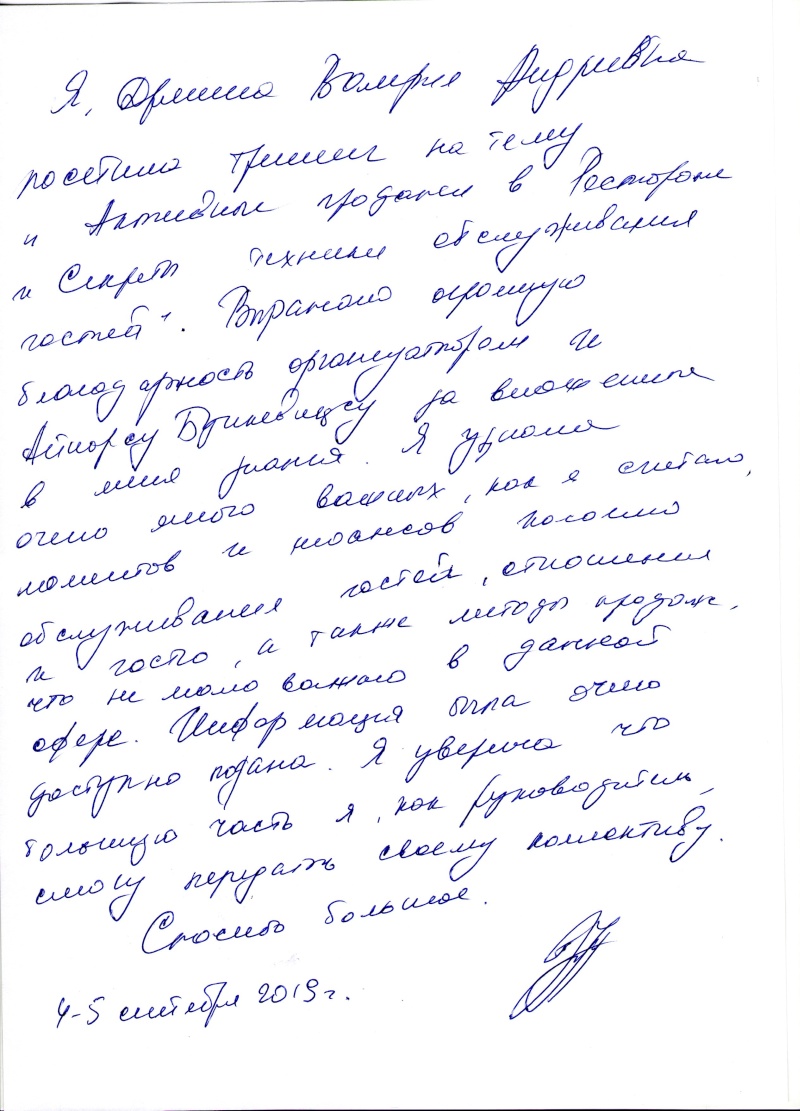 Я, Валерия Андреевна
посетила тренинг на тему
"Активные продажи в Ресторане
и Секреты техники обслуживания
гостей". Выражаю огромную
благодарность организаторам и
за вложенные
в меня знания. Я узнала
очень много важных, как я считаю,
моментов и нюансов касаемо
обслуживания гостей, отношения
к гостю, а также методы продаж,
что не мало важно в данной
сфере. Информация была очень
доступно подана. Я уверена что
большую часть я, как руководитель,
смогу передать своему коллективу.
Спасибо большое.
4-5 сентября 2019г.